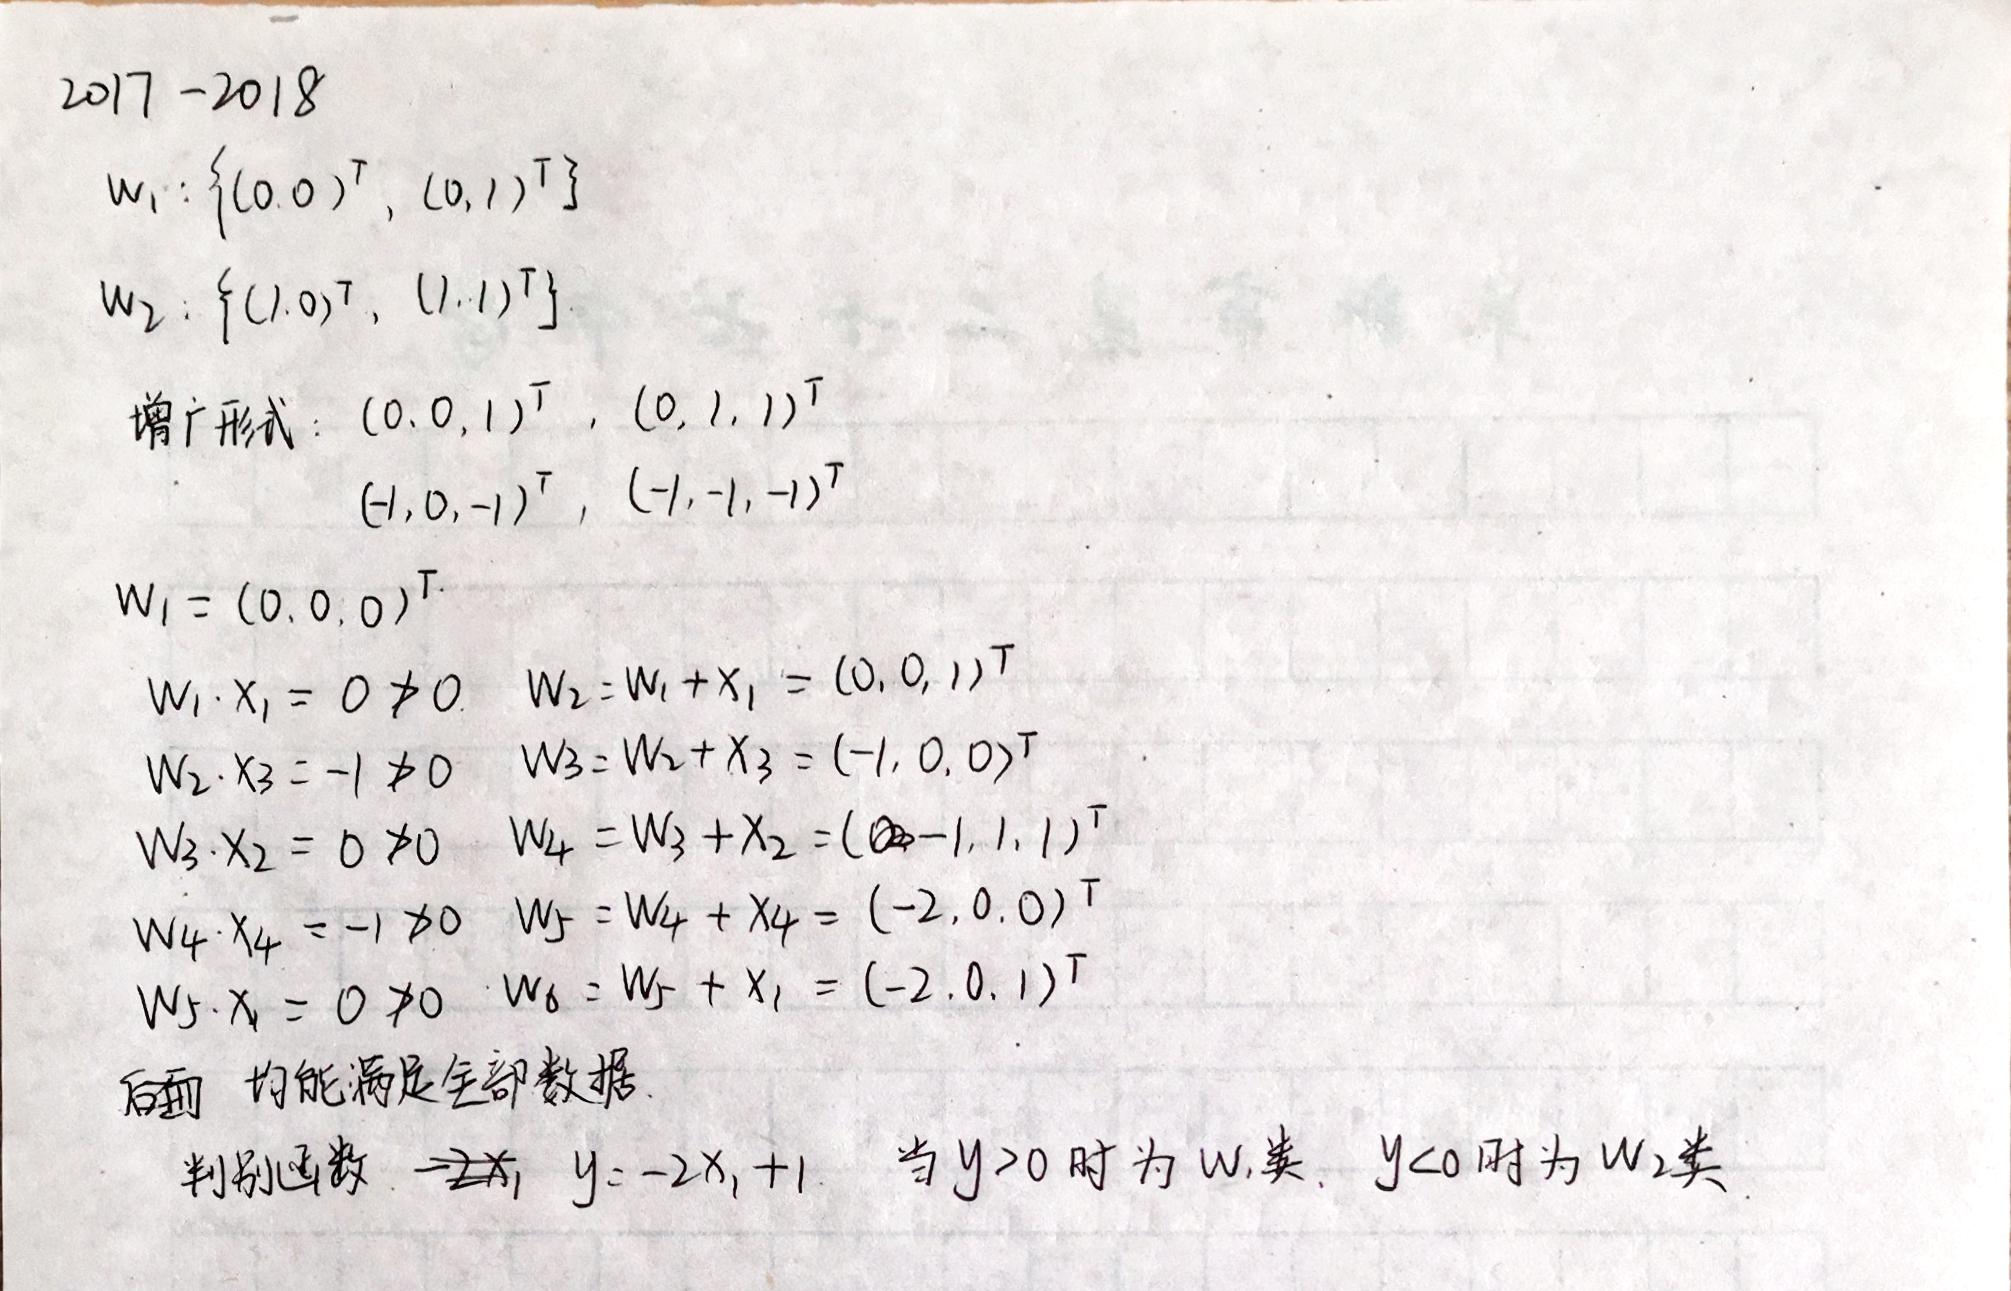 2017-2018
W₁:{(0.0)ᵀ, (0,1)ᵀ}
W₂:{(1.0)ᵀ, (1.1)ᵀ}.
增广形式: (0.0,1)ᵀ, (0,1,1)ᵀ
(-1,0,-1)ᵀ, (-1,-1,-1)ᵀ
W₁=(0.0.0)ᵀ
W₁·X₁=0≯0. W₂=W₁+X₁=(0,0,1)ᵀ
W₂·X₃=-1≯0 W₃=W₂+X₃=(-1,0,0)ᵀ
W₃·X₂=0≯0 W₄=W₃+X₂=(-1,1,1)ᵀ
W₄·X₄=-1≯0 W₅=W₄+X₄=(-2,0,0)ᵀ
W₅·X₁=0≯0 W₆=W₅+X₁=(-2.0.1)ᵀ
后面 均能满足全部数据.
判别函数 -2X₁ y=-2X₁+1. 当y>0时为W₁类. y<0时为W₂类.